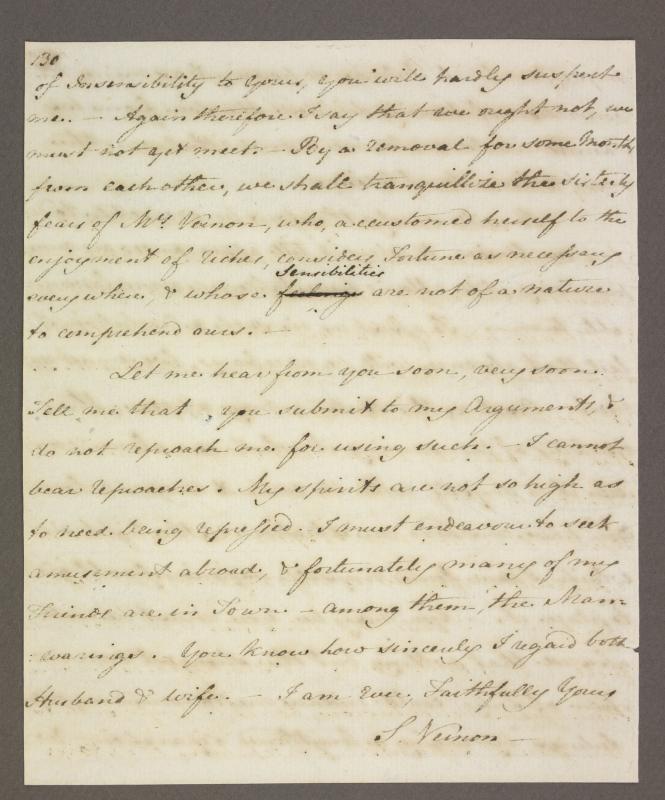 130
of Insensibility to yours, you will hardly suspect
me. — Again therefore I say that we ought not, we
must not yet meet. — By a removal for some Months
from each other, we shall tranquillize the sisterly
fears of Mrs Vernon, who, accustomed herself to the
enjoyment of riches, considers Fortune as necessary
Sensibilities
every where, & whose feelings are not of a nature
to comprehend ours. —
Let me hear from you soon, very soon.
Tell me that you submit to my Arguments, &
do not reproach me for using such. — I cannot
bear reproaches. My spirits are not so high as
to need being repressed. I must endeavour to seek
amusement abroad, & fortunately many of my
Friends are in Town — among them, the Man=
=warings. You know how sincerely I regard both
Husband & wife. — I am Ever, Faithfully Yours
S. Vernon —